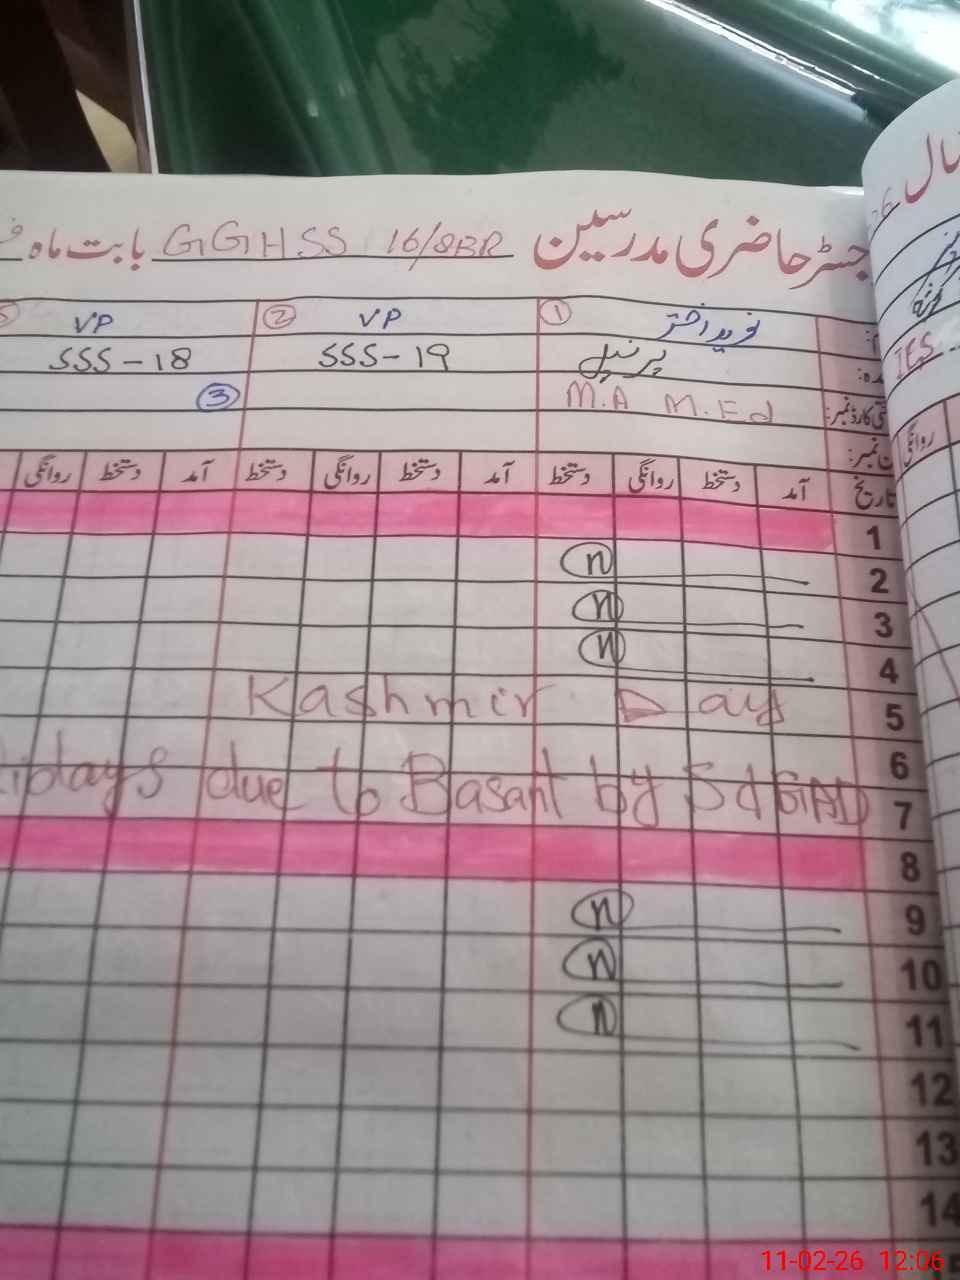 رجسٹر حاضری مدرسین GGHSS 16/8BR بابت ماہ
① نوید اختر ② VP VP
پرنسپل SSS-19 SSS-18
M.A M.Ed ③
تاریخ آمد دستخط روانگی دستخط آمد دستخط روانگی دستخط آمد دستخط روانگی
1
2 n
3 n
4 n
5 Kashmir Day
6
7 due to Basant by
8
9 n
10 n
11 n
12
13
14
سال
IES
روانگی
11-02-26 12:06